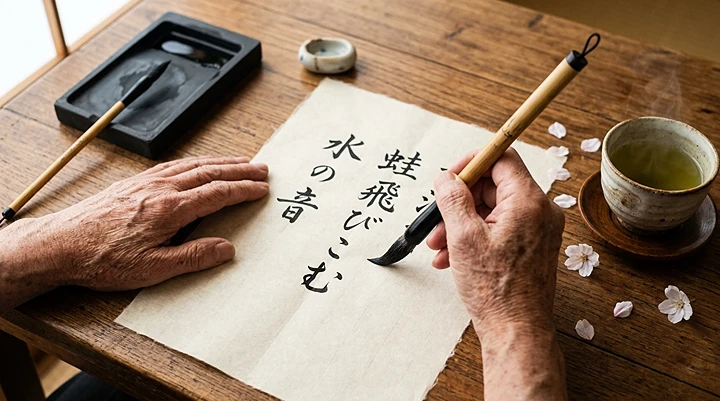 蛙飛びこむ
水の音